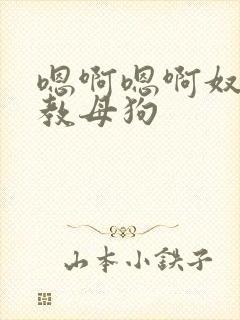 嗯啊嗯啊奴
教母狗
山本小鉄子